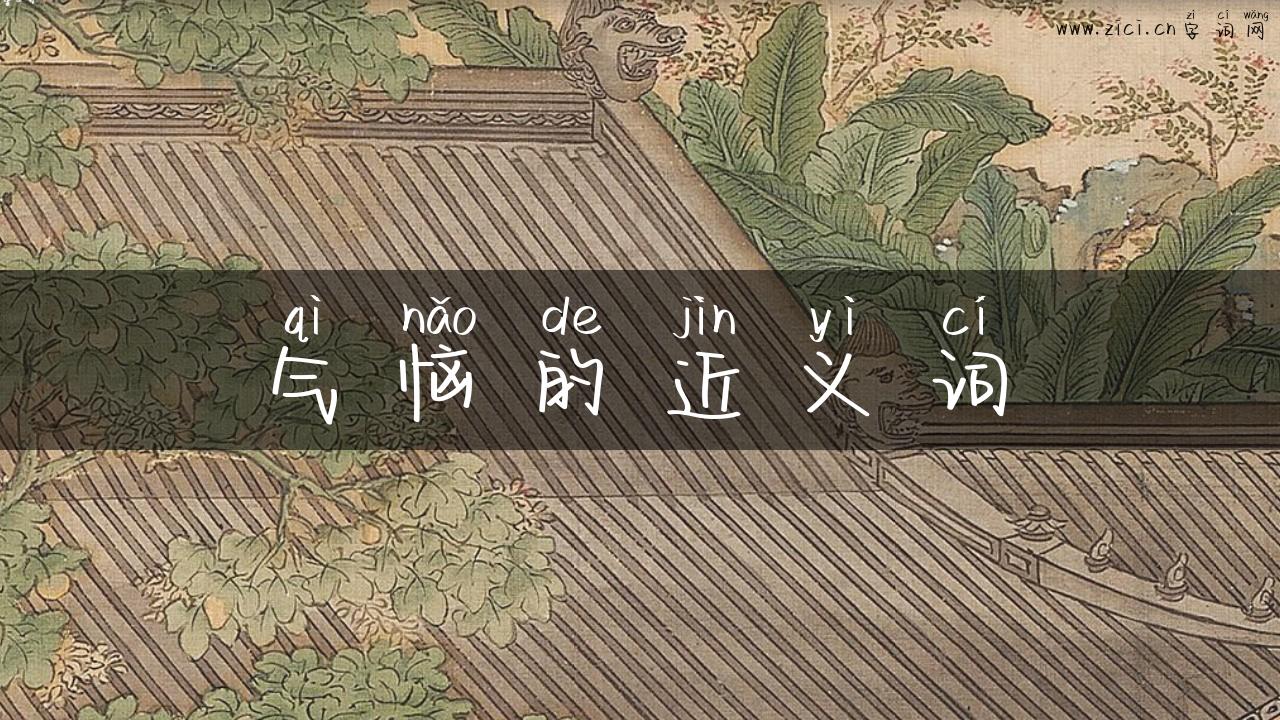 zì cí wǎng
www.zici.cn 字词网
qì nǎo de jìn yì cí
气恼的近义词